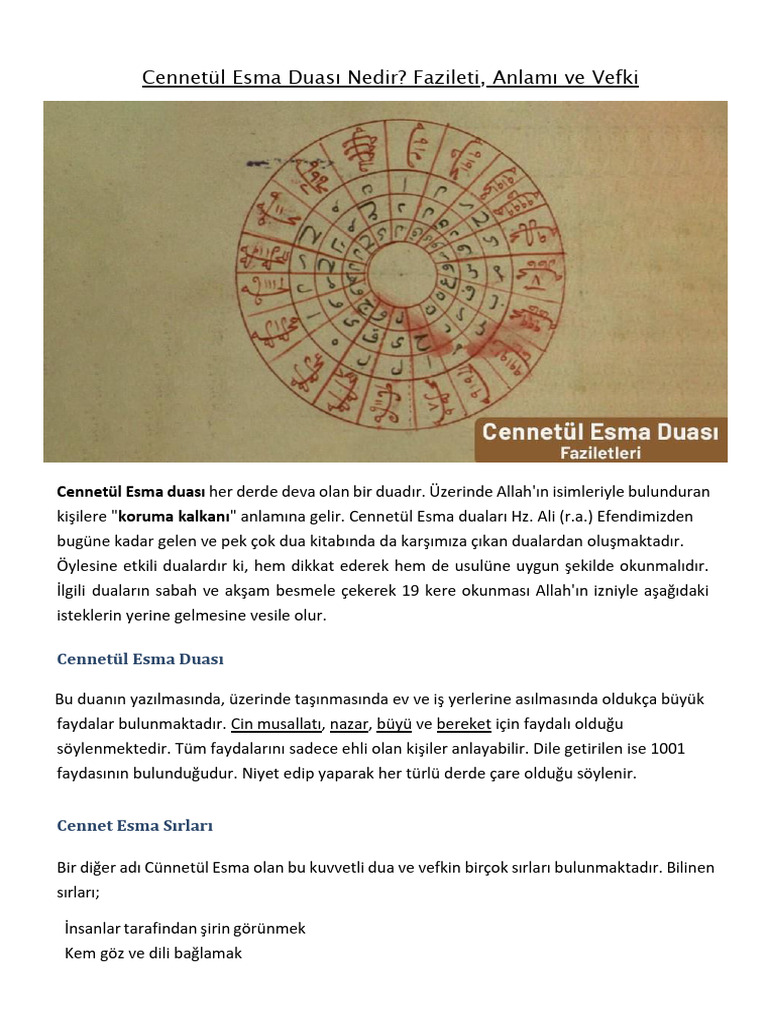 Cennetül Esma Duası Nedir? Fazileti, Anlamı ve Vefki
Cennetül Esma Duası
Faziletleri
Cennetül Esma duası her derde deva olan bir duadır. Üzerinde Allah'ın isimleriyle bulunduran
kişilere "koruma kalkanı" anlamına gelir. Cennetül Esma duaları Hz. Ali (r.a.) Efendimizden
bugüne kadar gelen ve pek çok dua kitabında da karşımıza çıkan dualardan oluşmaktadır.
Öylesine etkili dualardır ki, hem dikkat ederek hem de usulüne uygun şekilde okunmalıdır.
İlgili duaların sabah ve akşam besmele çekerek 19 kere okunması Allah'ın izniyle aşağıdaki
isteklerin yerine gelmesine vesile olur.
Cennetül Esma Duası
Bu duanın yazılmasında, üzerinde taşınmasında ev ve iş yerlerine asılmasında oldukça büyük
faydalar bulunmaktadır. Cin musallatı, nazar, büyü ve bereket için faydalı olduğu
söylenmektedir. Tüm faydalarını sadece ehli olan kişiler anlayabilir. Dile getirilen ise 1001
faydasının bulunduğudur. Niyet edip yaparak her türlü derde çare olduğu söylenir.
Cennet Esma Sırları
Bir diğer adı Cünnetül Esma olan bu kuvvetli dua ve vefkin birçok sırları bulunmaktadır. Bilinen
sırları;
İnsanlar tarafından şirin görünmek
Kem göz ve dili bağlamak